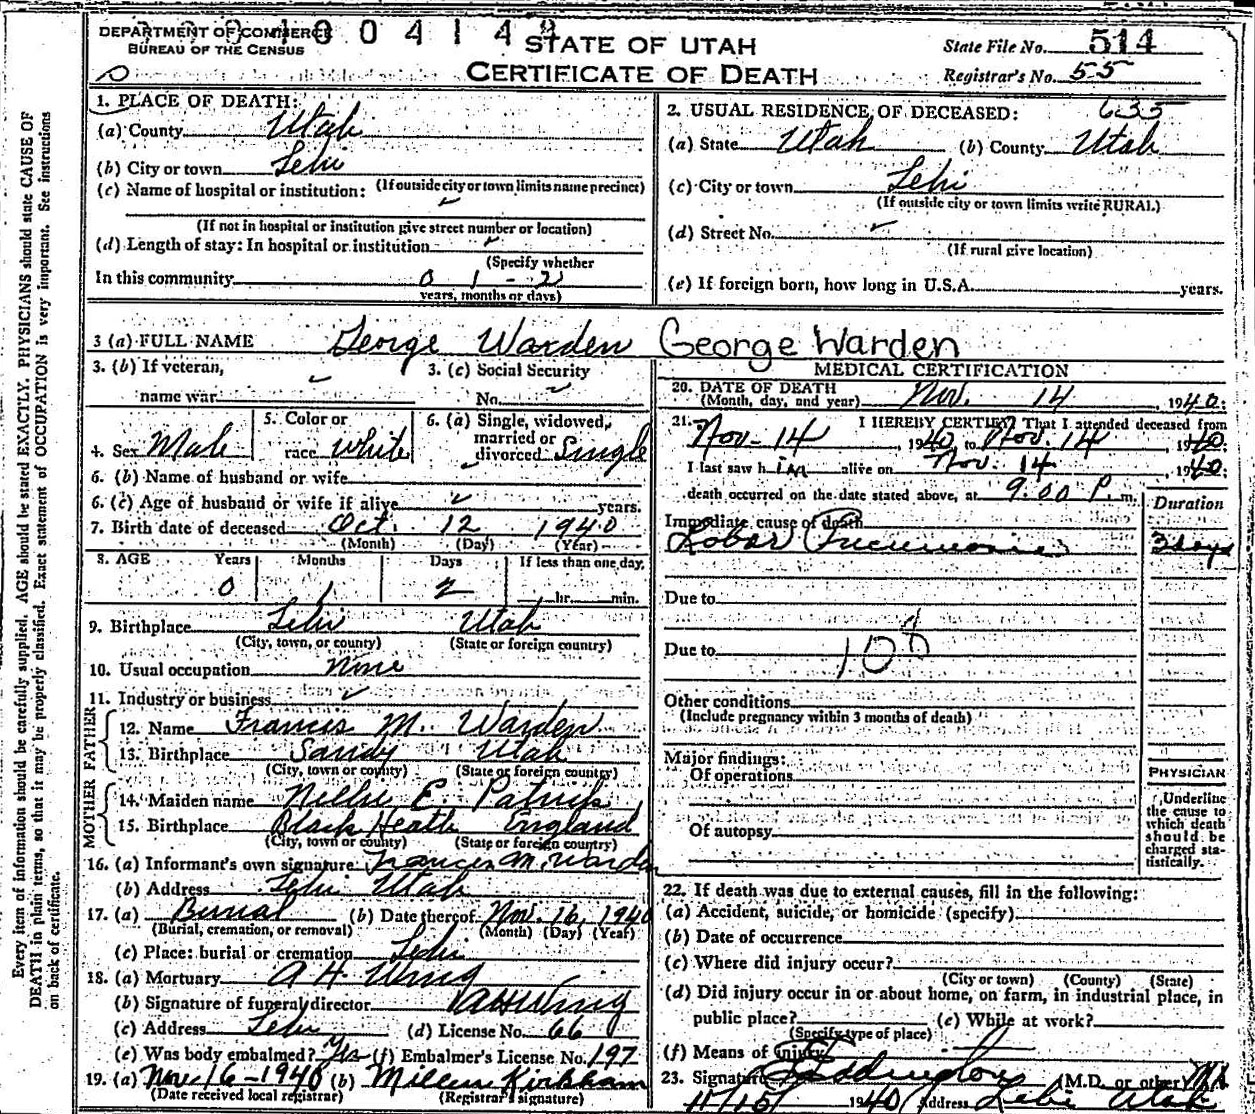 DEPARTMENT OF COMMERCE
BUREAU OF THE CENSUS
1004149
STATE OF UTAH
CERTIFICATE OF DEATH
State File No. 514
Registrar's No. 55
Every item of information should be carefully supplied. AGE should be stated EXACTLY. PHYSICIANS should state CAUSE OF
DEATH in plain terms, so that it may be properly classified. Exact statement of OCCUPATION is very important. See instructions
on back of certificate.
1. PLACE OF DEATH:
(a) County Utah
(b) City or town Lehi
(If outside city or town limits name precinct)
(c) Name of hospital or institution:
(If not in hospital or institution give street number or location)
(d) Length of stay: In hospital or institution
(Specify whether
In this community 0 1 - 2
years, months or days)
2. USUAL RESIDENCE OF DECEASED: 635
(a) State Utah (b) County Utah
(c) City or town Lehi
(If outside city or town limits write RURAL.)
(d) Street No.
(If rural give location)
(e) If foreign born, how long in U.S.A. years.
3 (a) FULL NAME George Warden George Warden
3. (b) If veteran,
name war
3. (c) Social Security
No.
4. Sex Male
5. Color or
race white
6. (a) Single, widowed,
married or
divorced Single
6. (b) Name of husband or wife
6. (c) Age of husband or wife if alive years.
7. Birth date of deceased Oct. 12 1940
(Month) (Day) (Year)
8. AGE Years Months Days If less than one day,
0 1 2 hr. min.
9. Birthplace Lehi Utah
(City, town, or county) (State or foreign country)
10. Usual occupation None
11. Industry or business
FATHER
12. Name Francis M. Warden
13. Birthplace Sandy Utah
(City, town or county) (State or foreign country)
MOTHER
14. Maiden name Nellie E. Patrick
15. Birthplace Black Heath England
(City, town or county) (State or foreign country)
16. (a) Informant's own signature Francis M. Warden
(b) Address Lehi Utah
17. (a) Burial (b) Date thereof Nov. 16, 1940
(Burial, cremation, or removal) (Month) (Day) (Year)
(c) Place: burial or cremation Lehi
18. (a) Mortuary A H Wing
(b) Signature of funeral director A H Wing
(c) Address Lehi (d) License No. 66
(e) Was body embalmed? Yes (f) Embalmer's License No. 197
19. (a) Nov 16-1940 (b) Millen Kirkham
(Date received local registrar) (Registrar's signature)
MEDICAL CERTIFICATION
20. DATE OF DEATH
(Month, day, and year) Nov. 14, 1940.
21. I HEREBY CERTIFY That I attended deceased from
Nov-14, 1940 to Nov. 14 1940.
I last saw him alive on Nov. 14 1940:
death occurred on the date stated above, at 9:00 P. m.
Duration
Immediate cause of death
Lobar Pneumonia 3 days
Due to
Due to 108
Other conditions
(Include pregnancy within 3 months of death)
Major findings:
Of operations
Of autopsy
PHYSICIAN
Underline
the cause to
which death
should be
charged sta-
tistically.
22. If death was due to external causes, fill in the following:
(a) Accident, suicide, or homicide (specify)
(b) Date of occurrence
(c) Where did injury occur?
(City or town) (County) (State)
(d) Did injury occur in or about home, on farm, in industrial place, in
public place? (e) While at work?
(Specify type of place)
(f) Means of injury
23. Signature Eddington (M.D. or other) M.D.
11/15/1940 Address Lehi Utah